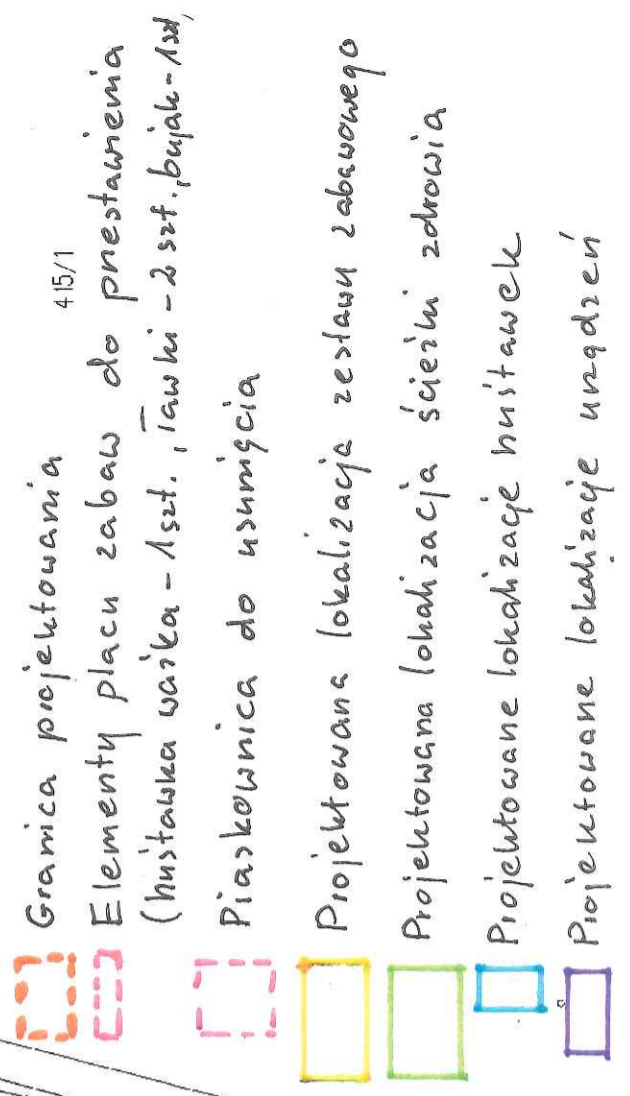 Granica projektowania
415/1
Elementy placu zabaw do przestawienia
(huśtawka ważka - 1szt., ławki - 2 szt., bujak - 1szt,
Piaskownica do usunięcia
Projektowana lokalizacja zestawu zabawowego
Projektowana lokalizacja ścieżki zdrowia
Projektowane lokalizacje huśtawek
Projektowane lokalizacje urządzeń